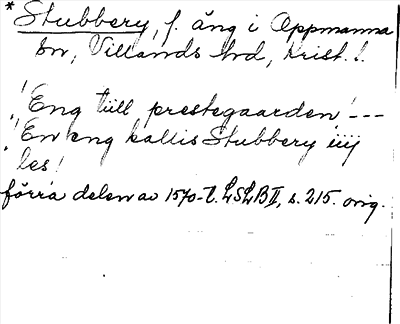 * Stubbery, f. äng i Oppmanna
sn, Villands hd, Krist. l.
"Eng till prestegaarden" ---
"En eng kallis Stubbery iiij
les"
förra delen av 1570-t. LSLB II, s. 215. orig.